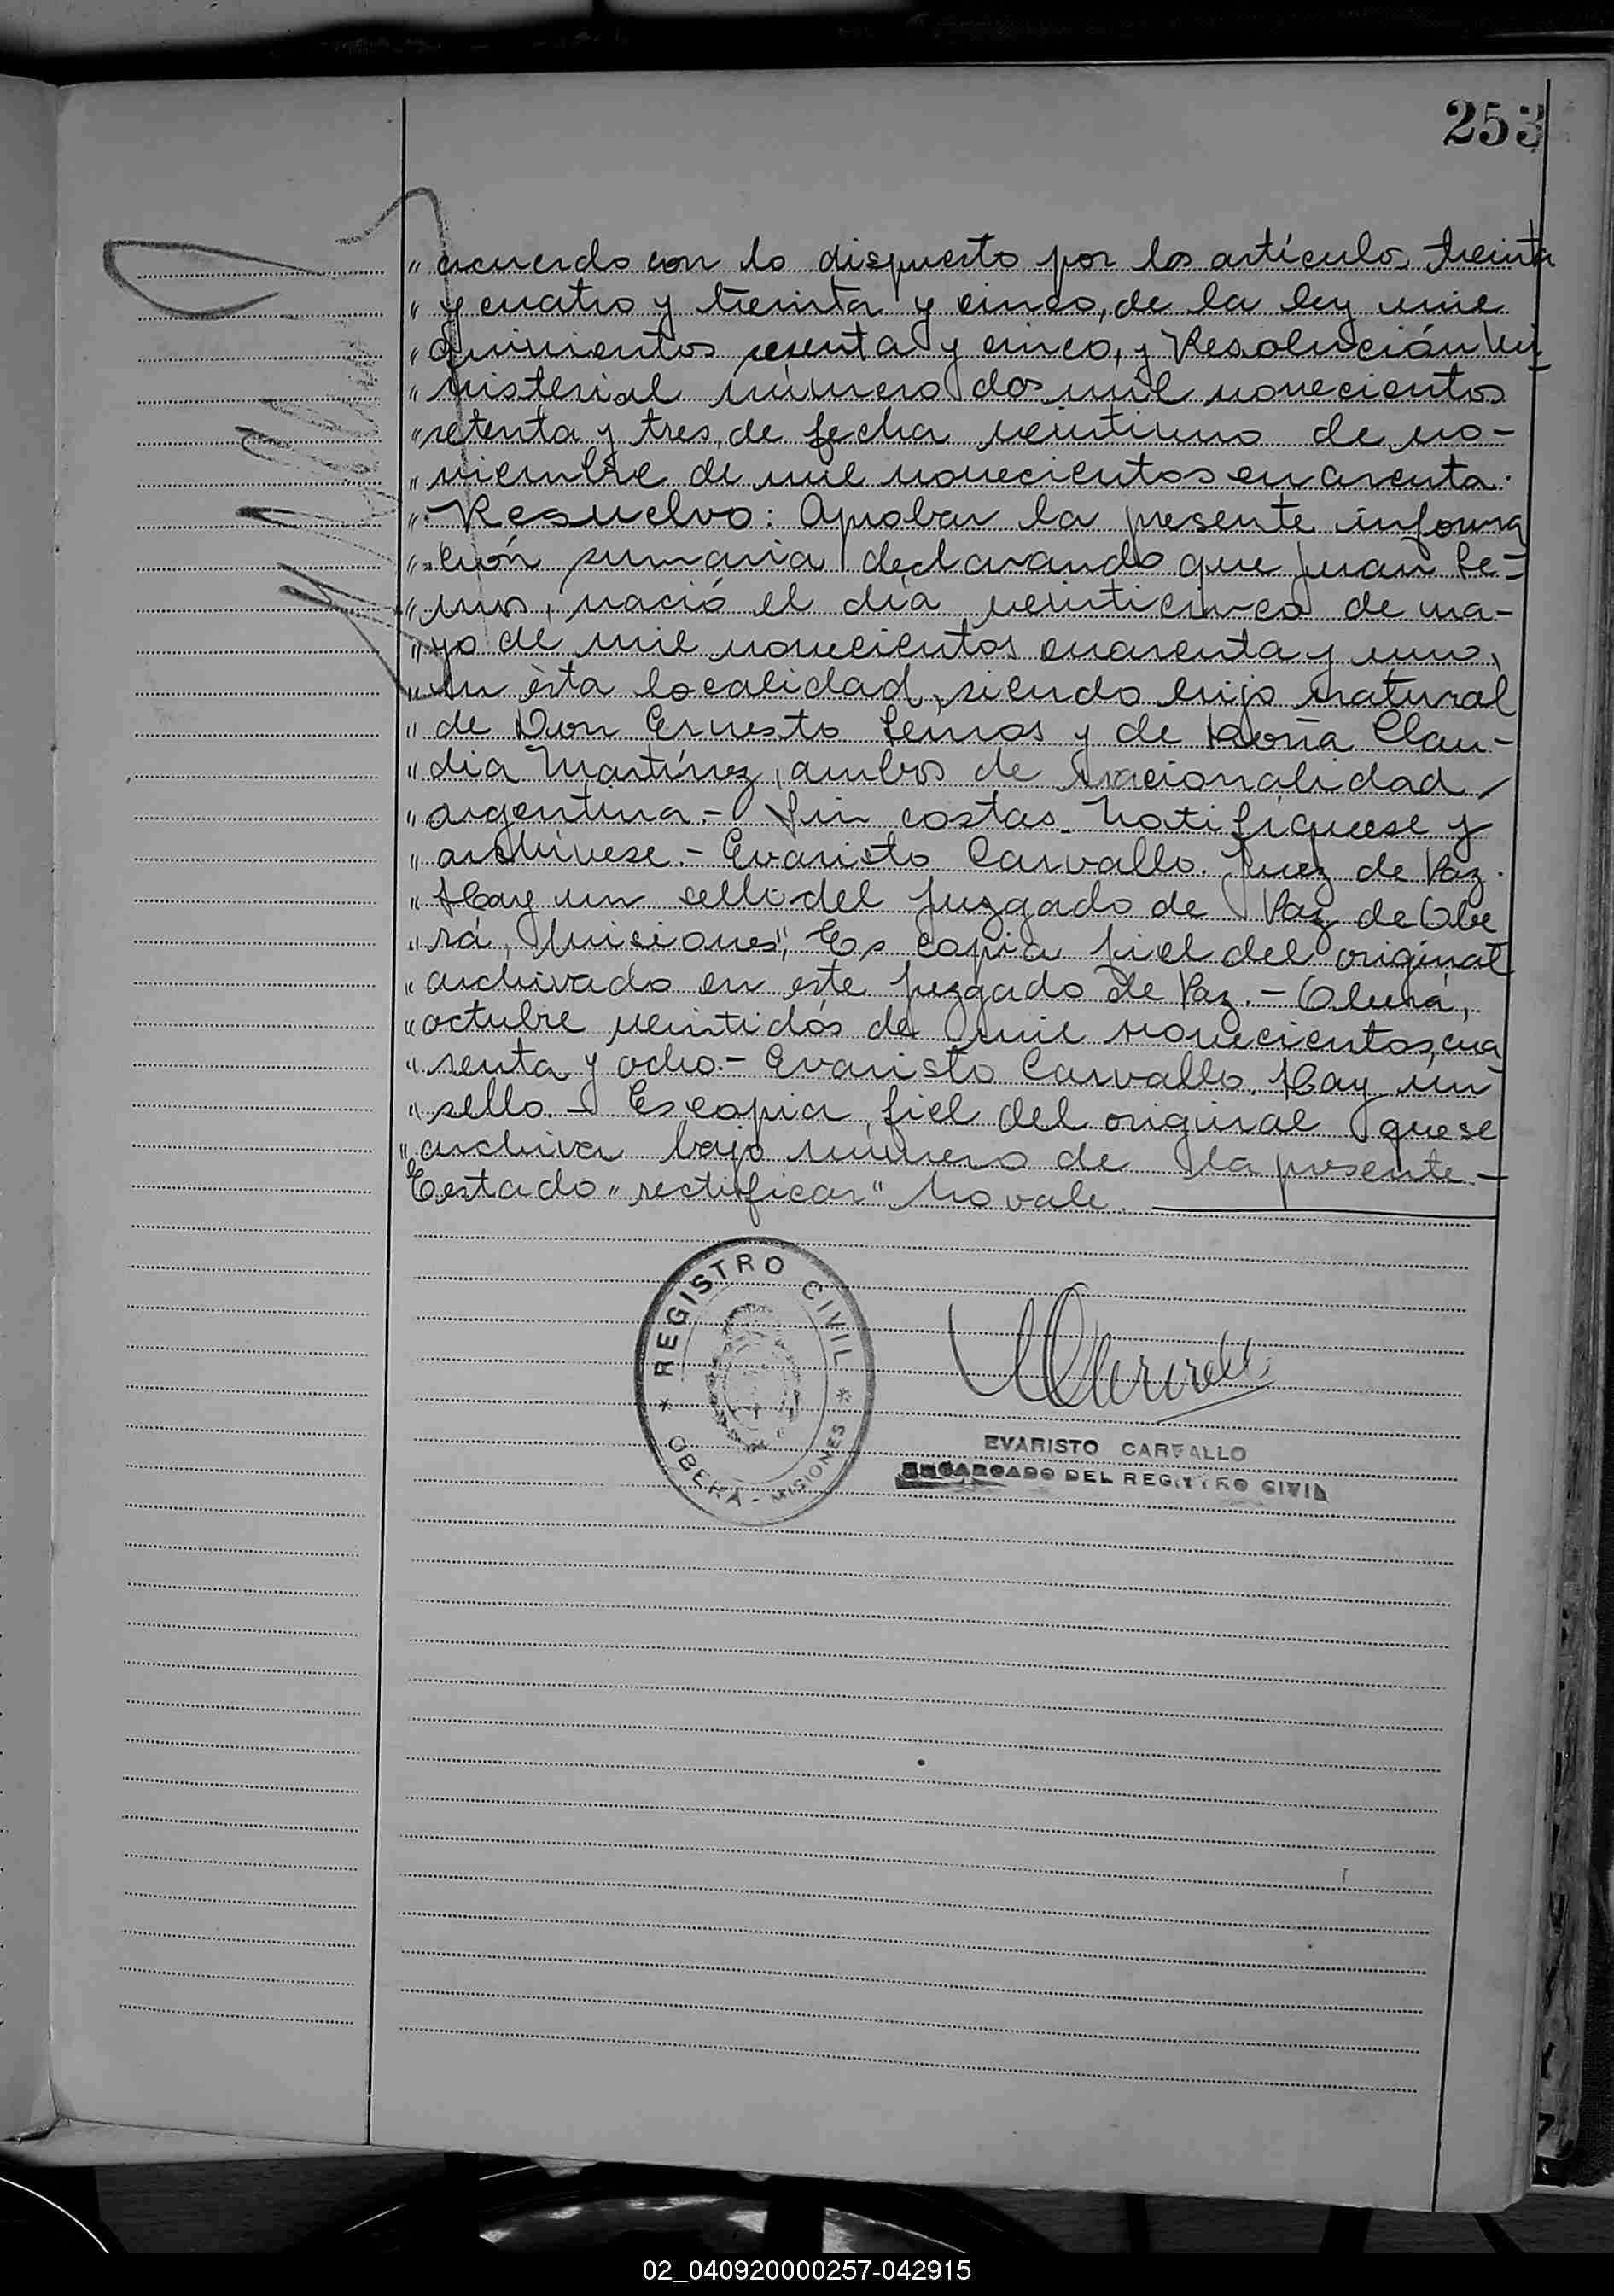 253
" acuerdo con lo dispuesto por los artículos treinta
" y cuatro y treinta y cinco, de la ley mil
" quinientos sesenta y cinco, y Resolución Mi-
" nisterial número dos mil novecientos
" setenta y tres, de fecha veintiuno de no-
" viembre de mil novecientos cuarenta.
" Resuelvo: Aprobar la presente informa
" ción sumaria declarando que Juan Le-
" mos, nació el día veinticinco de ma-
" yo de mil novecientos cuarenta y uno,
" en ésta localidad, siendo hijo natural
" de Don Ernesto Lemos y de Doña Clau-
" dia Martínez, ambos de nacionalidad
" argentina.- Sin costas. Notifíquese y
" archívese.- Evaristo Carvallo. Juez de Paz.
" Hay un sello del Juzgado de Paz de Obe
" rá, Misiones", Es copia fiel del original
" archivado en este Juzgado de Paz.- Oberá,
" octubre veintidós de mil novecientos cua
" renta y ocho.- Evaristo Carvallo. Hay un
" sello.- Es copia fiel del original que se
" archiva bajo número de la presente.-
Testado "rectificar" No vale.
REGISTRO CIVIL
* OBERA - MISIONES *
EVARISTO CARVALLO
ENCARGADO DEL REGISTRO CIVIL
02_040920000257-042915